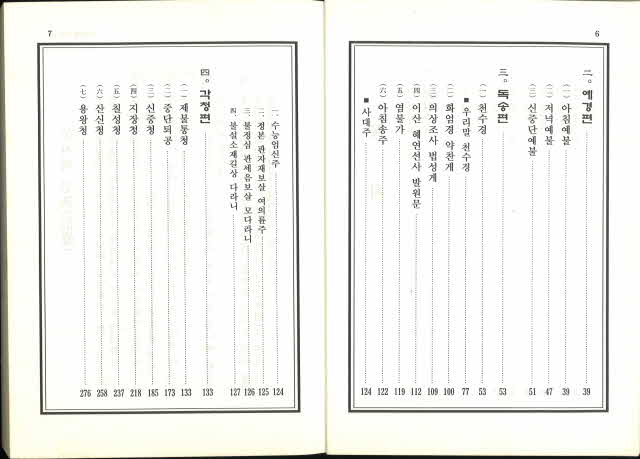 6
二。예경편 39
(一) 아침예불 39
(二) 저녁예불 47
(三) 신중단예불 51
三。독송편 53
(一) 천수경 53
■ 우리말 천수경 77
(二) 화엄경 약찬게 100
(三) 의상조사 법성게 109
(四) 이산 혜연선사 발원문 112
(五) 염불가 119
(六) 아침송주 122
■ 사대주 124
7
一. 수능엄신주 124
二. 정본 관자재보살 여의륜주 125
三. 불정심 관세음보살 모다라니 126
四. 불설소재길상 다라니 127
四。각청편 133
(一) 제불통청 133
(二) 중단퇴공 173
(三) 신중청 185
(四) 지장청 218
(五) 칠성청 237
(六) 산신청 258
(七) 용왕청 276